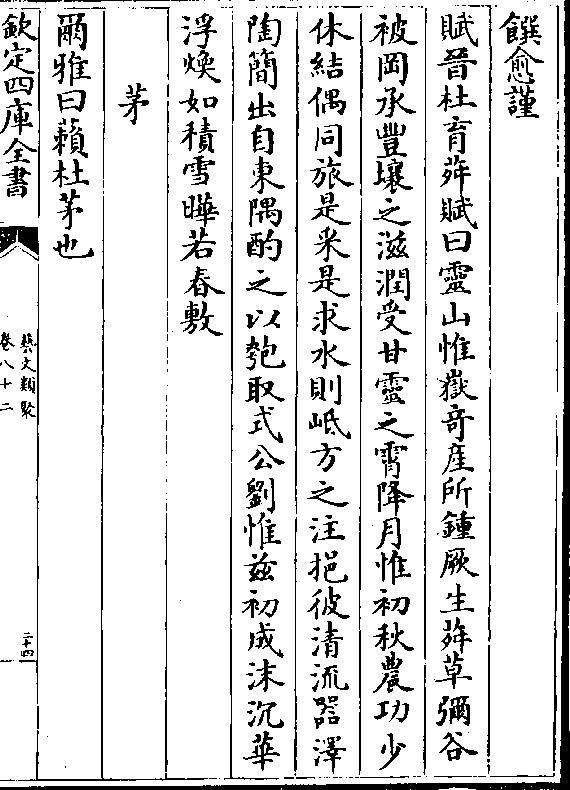 饌愈謹
賦晉杜育荈賦曰靈山惟嶽竒産所鍾厥生荈草彌谷
被岡承豐壤之滋潤受甘靈之霄降月惟初秋農功少
休結偶同旅是采是求水則岷方之注挹彼清流器澤
陶簡出自東隅酌之以匏取式公劉惟兹初成沫沉華
浮煥如積雪曄若春敷
茅
爾雅曰藾杜茅也
欽定四庫全書
藝文類聚
卷八十二
二十四